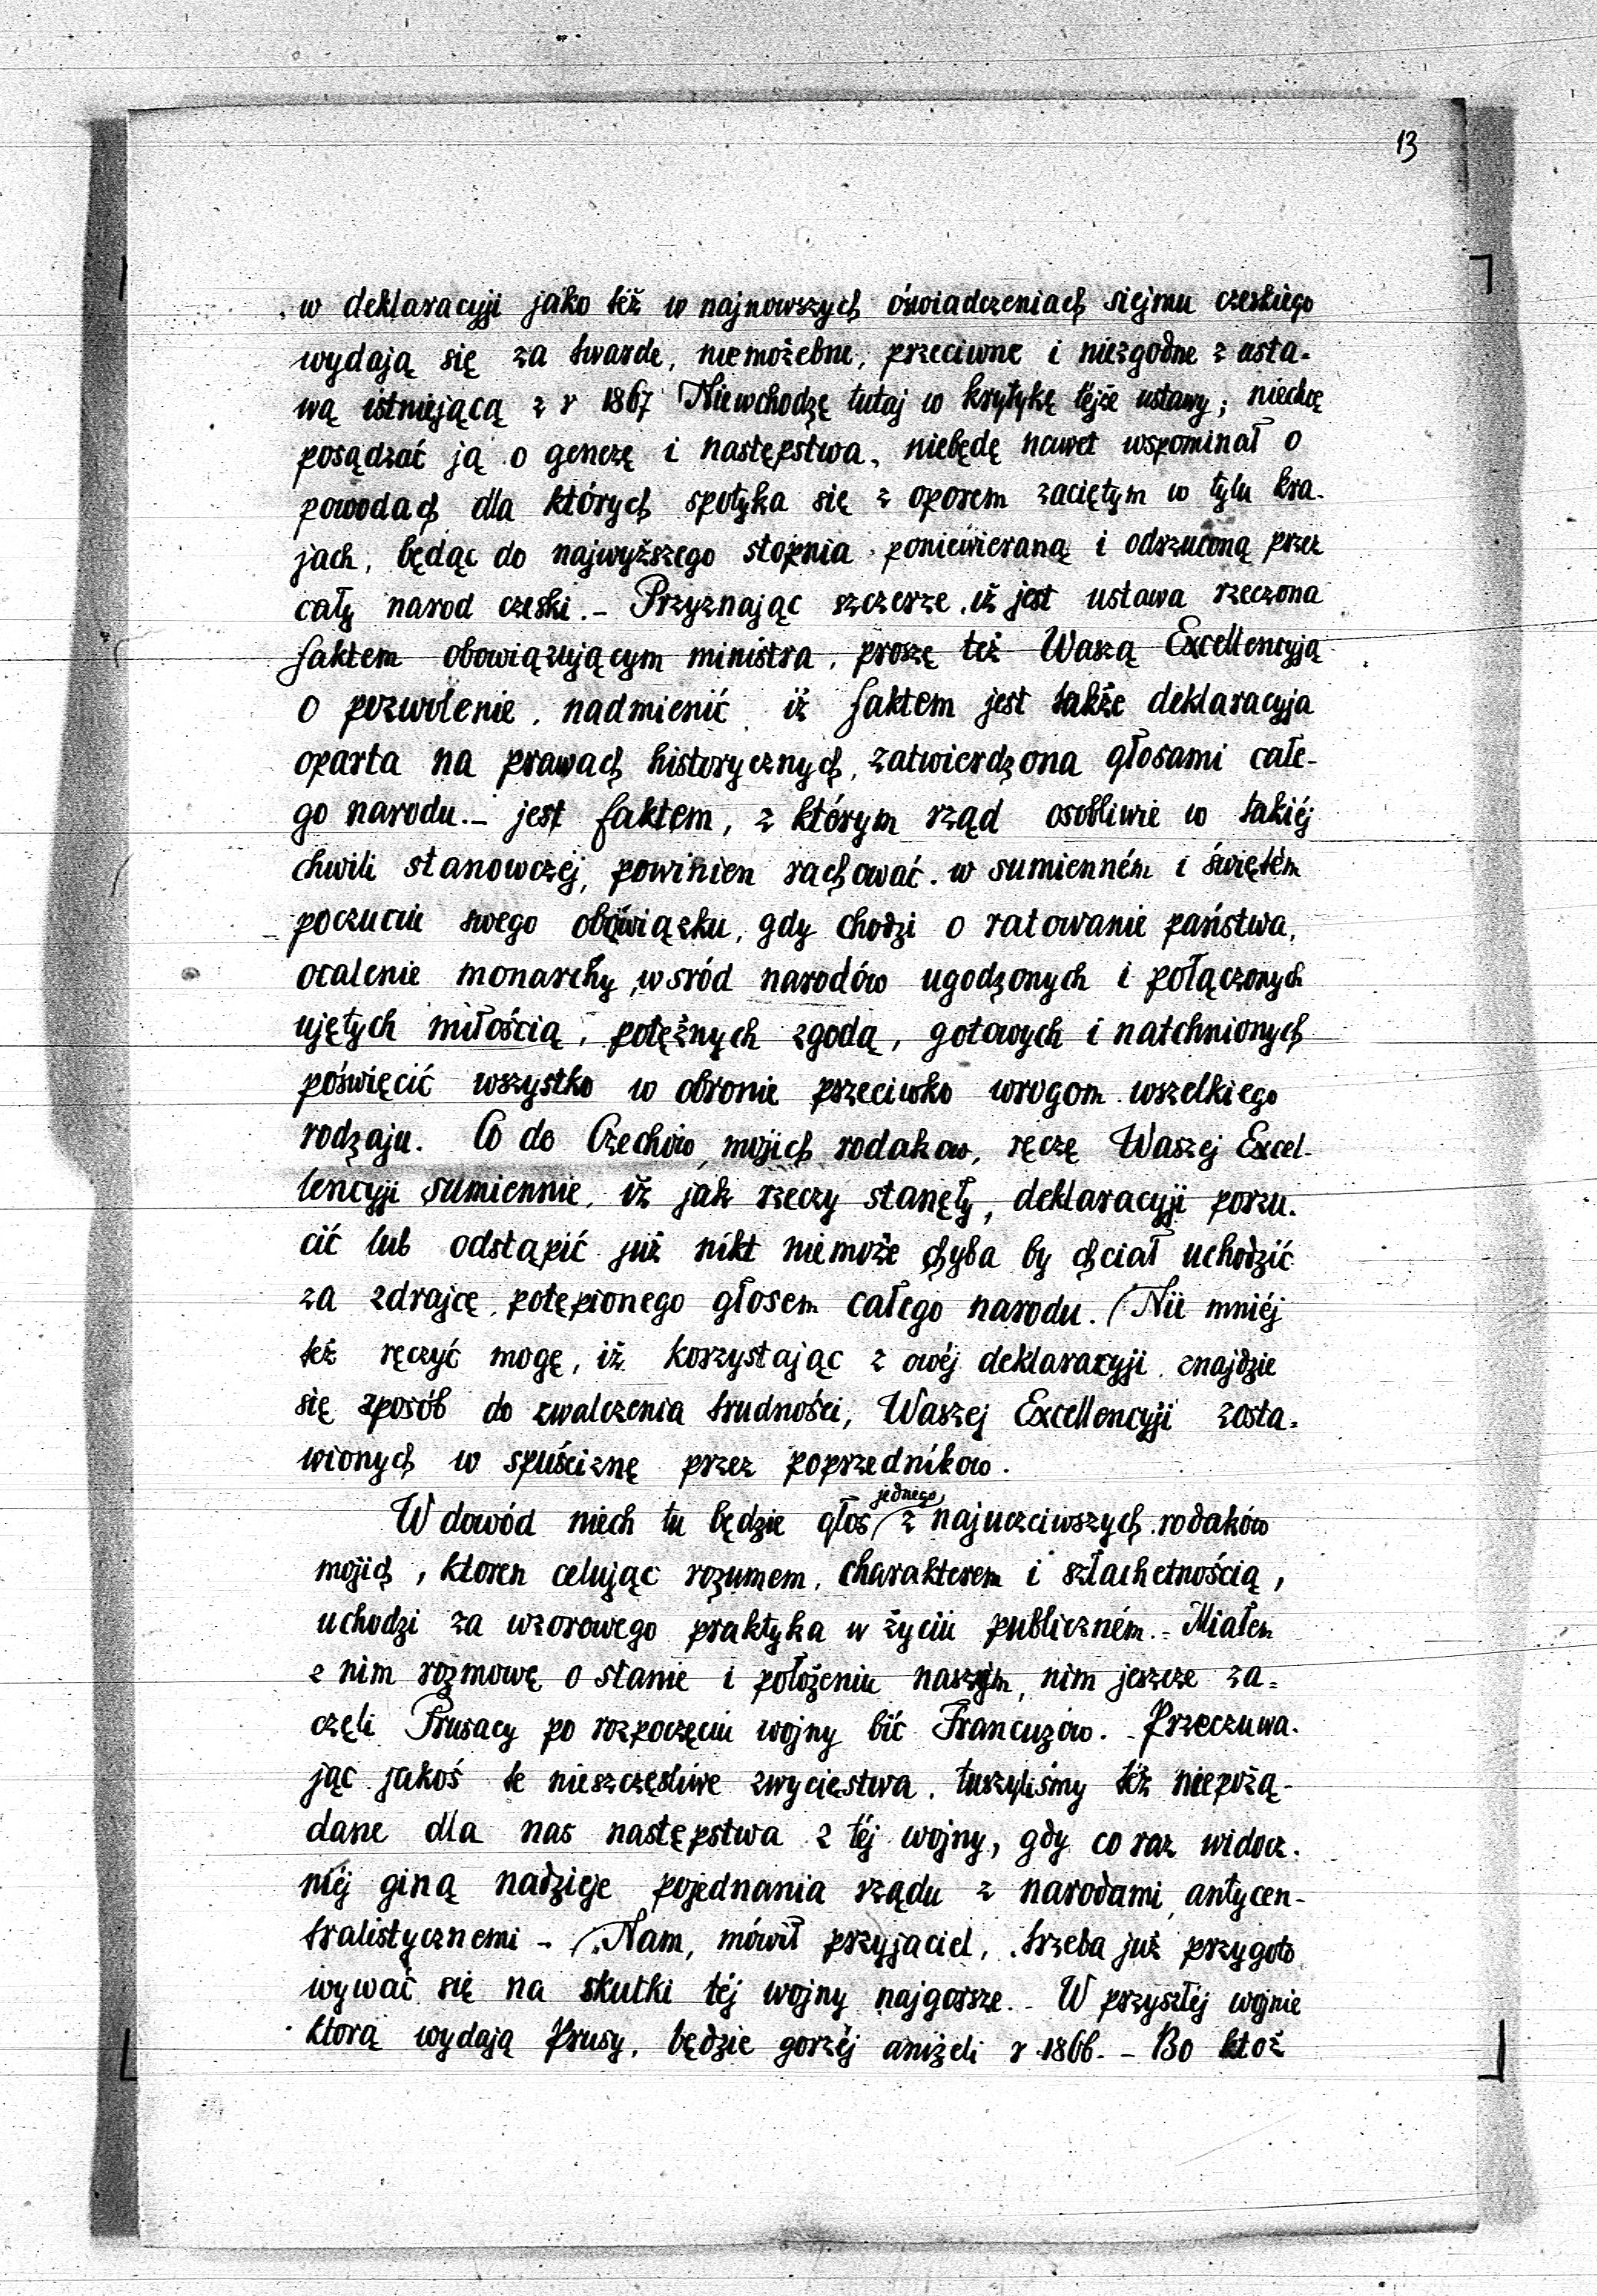 13
w deklaracyji jako też w najnowszych óświadczeniach siejmu czeskiego
wydają się za twarde, niemożebne, przeciwne i niezgodne z usta-
wą istniejącą z r 1867 Niewchodzę tutaj w krytykę téjże ustawy; niechcę
posądzać ją o genezę i następstwa, niebędę nawet wspominał o
powodach dla których spotyka się z oporem zaciętym w tylu kra-
jach, będąc do najwyższego stopnia poniewieraną i odrzuconą przez
cały narod czeski. – Przyznając szczerze, iż jest ustawa rzeczona
faktem obowiązującym ministra, proszę też Waszą Excellencyją
o pozwolenie, nadmienić, iż faktem jest także deklaracyja
oparta na prawach historycznych, zatwierdzona głosami całe-
go narodu. – jest faktem, z którym rząd osobliwie w takiéj
chwili stanowczéj, powinien rachować w sumienném i świętém
poczuciu swego obowiązku, gdy chodzi o ratowanie państwa,
ocalenie monarchy, wsród narodów ugodzonych i połączonych
ujętych miłością, potężnych zgodą, gotowych i natchnionych
poświęcić wszystko w obronie przeciwko wrogom wszelkiego
rodzaju. Co do Czechów, mojich rodakow, ręczę Waszej Excel-
lencyji sumiennie, iż jak rzeczy stanęły, deklaracyji porzu-
cić lub odstąpić już nikt niemoże chyba by chciał uchodzić
za zdrajcę, potępionego głosem całego narodu. Nie mniéj
też ręczyć mogę, iż korzystając z owéj deklaracyji znajdzie
się sposób do zwalczenia trudności, Waszej Excellencyji zosta-
wionych w spuściznę przez poprzedników.
W dowód niech tu będzie głos jednego z najuczciwszych rodaków
mojich, ktoren celując rozumem, charakterem i szlachetnością,
uchodzi za wzorowego praktyka w życiu publiczném. – Miałem
z nim rozmowę o stanie i położeniu naszym, nim jeszcze za-
częli Prusacy po rozpoczęciu wojny bić Francuzów. – Przeczuwa-
jąc jakoś te nieszczęsliwe zwycięstwa, tuszyliśmy też niepożą-
dane dla nas następstwa z téj wojny, gdy co raz widocz-
niéj giną nadzieje pojednania rządu z narodami antycen-
tralistycznemi – „Nam, mówił przyjaciel, „trzeba już przygoto
wywać się na skutki téj wojny najgorsze. – W przyszłéj wojnie
ktorą wydają Prusy, będzie gorzéj aniżeli r 1866. – Bo ktoż